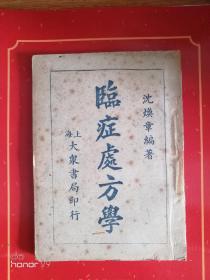 沈煥章編著
臨症處方學
上海大衆書局印行
honor